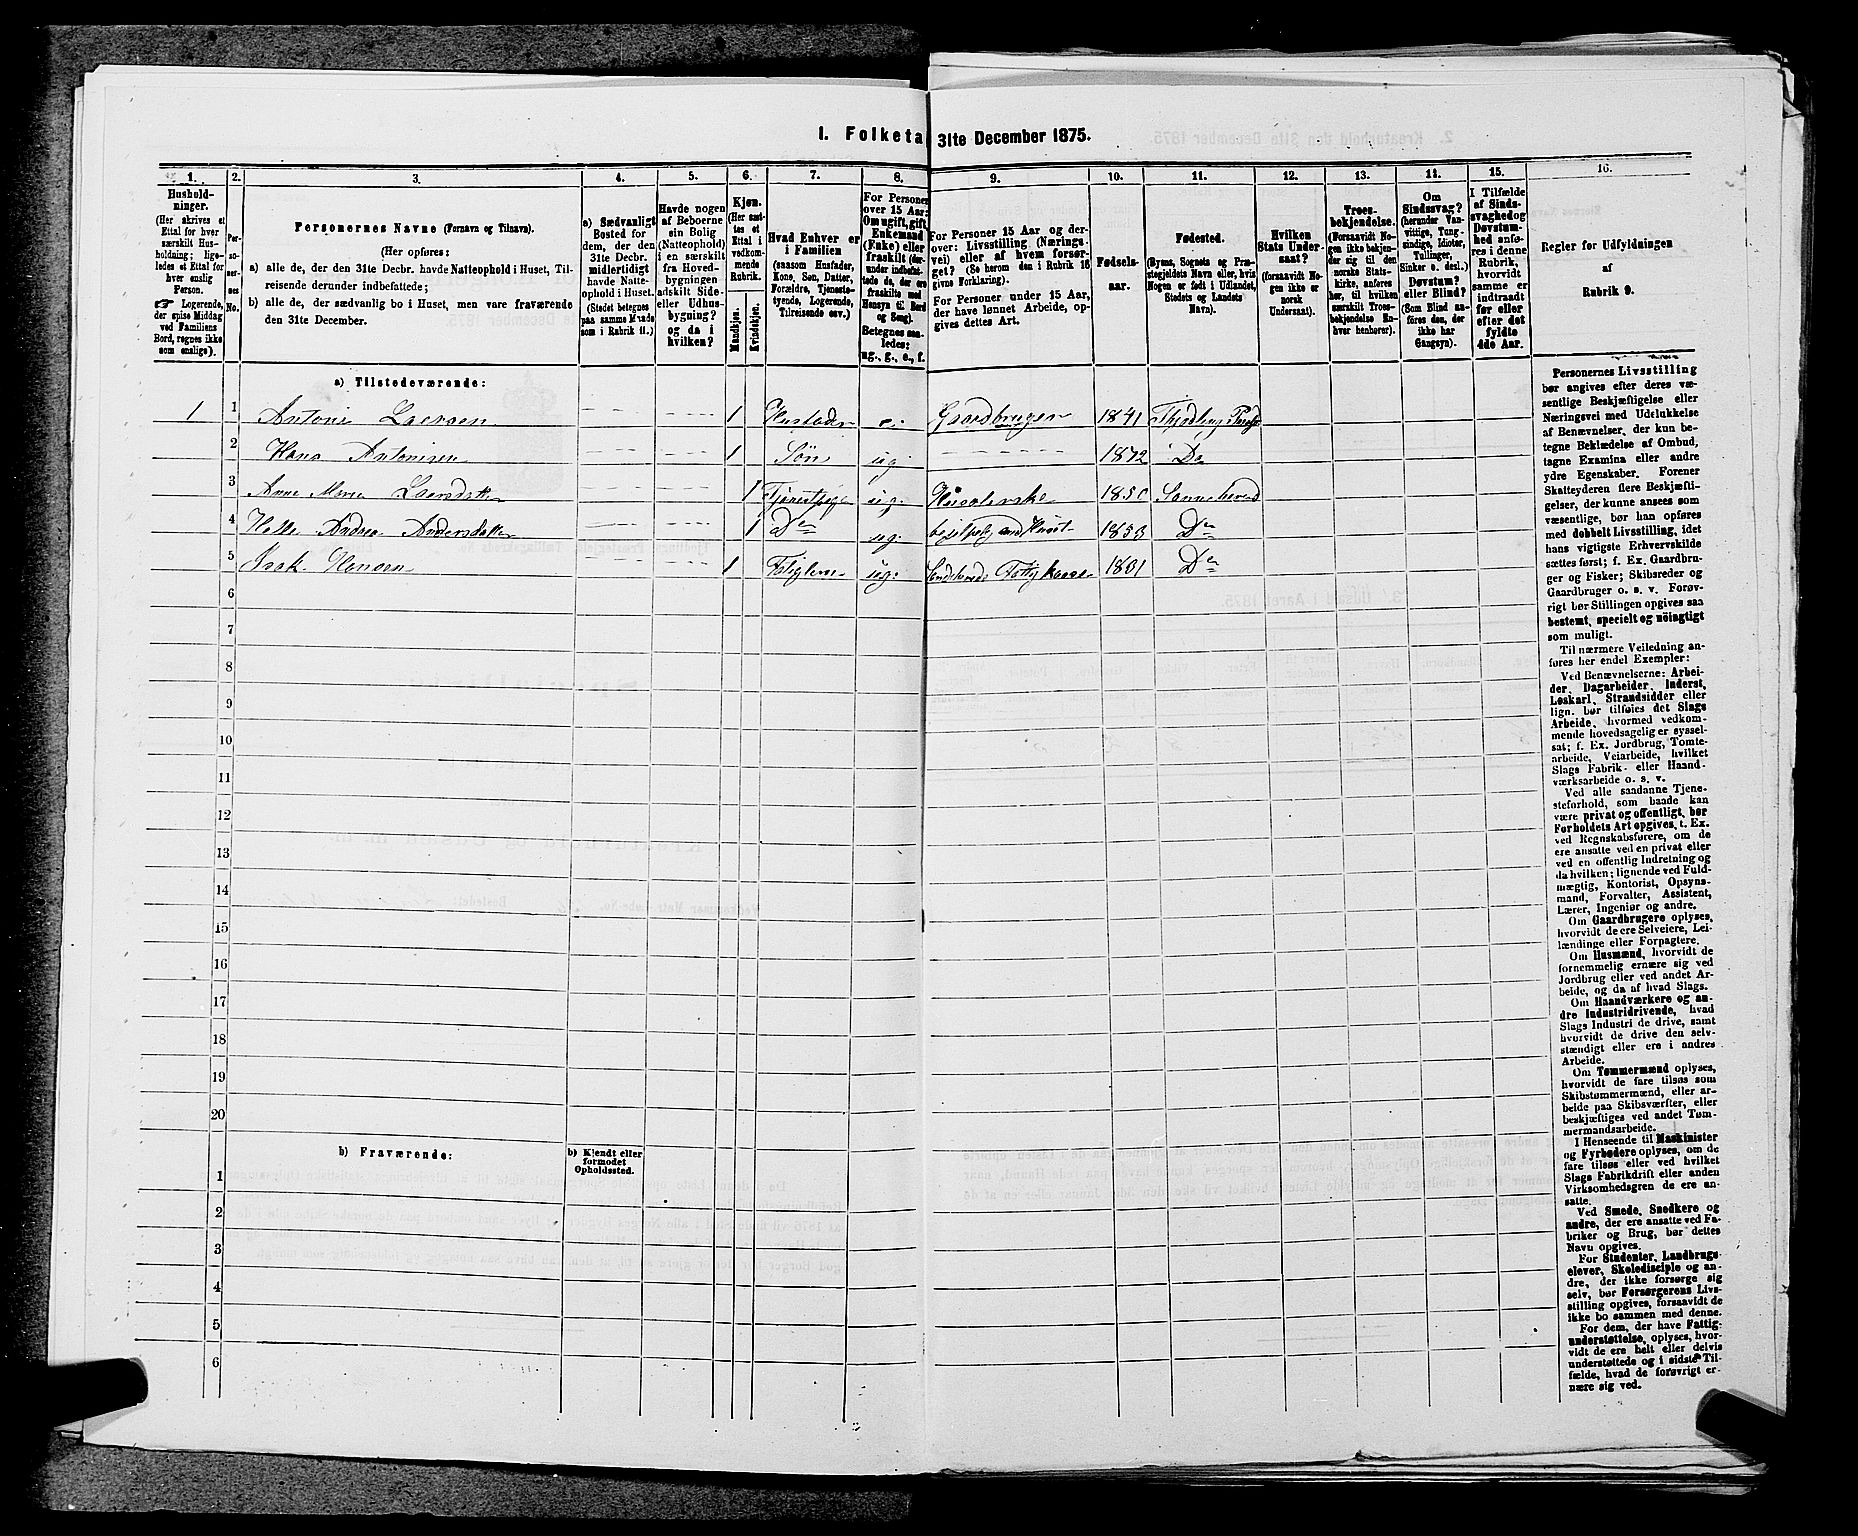 I. Folketa 31te December 1875.
1. 2. 3. 4. 5. 6. 7. 8. 9. 10. 11. 12. 13. 14. 15. 16.
Hushold-
ninger.
(Her skrives et
Ettal for hver
særskilt Hus-
holdning; lige-
ledes et Ettal for
hver enslig
Person.
☞ Logerende,
der spise Middag
ved Familiens
Bord, regnes ikke
som enslige).
Per-
so-
ner-
nes
No.
Personernes Navne (Fornavn og Tilnavn).
(Her opføres:
a) alle de, der den 31te Decbr. havde Natteophold i Huset, Til-
reisende derunder indbefattede;
b) alle de, der sædvanlig bo i Huset, men vare fraværende
den 31te December.
a) Sædvanligt
Bosted for
dem, der den
31te Decbr.
midlertidigt
havde Natte-
ophold i Huset.
(Stedet betegnes
paa samme Maade
som i Rubrik 11.)
Havde nogen
af Beboerne
ein Bolig
(Natteophold)
i en særskilt
fra Hoved-
bygningen
adskilt Side-
eller Udhus-
bygning?
og da i
hvilken?
Kjøn.
(Her sæt-
tes et
Ettal i
vedkom-
mende
Rubrik.
Mandkjøn.
Kvindekjøn.
Hvad Enhver er
i Familien
(saasom Husfader,
Kone, Søn, Datter,
Forældre, Tjeneste-
tyende, Logerende,
Tilreisende osv.)
For Personer
over 15 Aar:
Om ugift, gift,
Enkemand
(Enke) eller
fraskilt (der-
under indbefat-
tede de, der ere
fraskilte med
Hensyn til Bord
og Seng).
Betegnes saa-
ledes:
ug., g., e., f.
For Personer over 15 Aar og der-
over: Livsstilling (Nærings-
vei) eller af hvem forsør-
get? (Se herom den i Rubrik 16
givne Forklaring).
For Personer under 15 Aar,
der have lønnet Arbeide, op-
gives dettes Art.
Fødsels-
aar.
Fødested.
(Byens, Sognets og Præ-
stegjeldets Navn eller, hvis
Nogen er født i Udlandet,
Stedets og Landets
Navn).
Hvilken
Stats Under-
saat?
(forsaavidt No-
gen ikke er
norsk
Undersaat).
Troes-
bekjendelse.
(Forsaavidt No-
gen ikke bekjen-
der sig til den
norske Stats-
kirke, anføres
her, til hvilken
særskilt Troes-
bekjendelse En-
hver henhører).
Om
Sindssvag?
(herunder Van-
vittige, Tung-
sindige, Idioter,
Tullinger,
Sinker o. desl.)
Døvstum?
eller Blind?
(Som Blind an-
føres den, der
ikke har
Gangsyn).
I Tilfælde
af Sinds-
svaghed og
Døvstum-
hed anfø-
res i denne
Rubrik,
hvorvidt
samme er
indtraadt
før eller
efter det
fyldte
4de Aar.
Regler for Udfyldningen
af
Rubrik 9.
a) Tilstedeværende:
1 1 Antoni Larsen 1 Husfader e. Gaardbruger 1841 Thjødling
2 Hans Antonisen 1 Søn ug. 1872 Do
3 Anne Marie Larsdatter 1 ug. 1850
4 Helle Andrea Andersdatter 1 Do ug. 1853 Do
5 Isak Hansen 1 ug. 1801 Do
6
7
8
9
10
11
12
13
14
15
16
17
18
19
20
b) Fraværende:
b) Kjendt eller
formodet
Opholdssted.
1
2
3
4
5
6
Personernes Livsstilling
bør angives efter deres væ-
sentlige Beskjæftigelse eller
Næringsvei med Udelukkelse
af Benævnelser, der kun be-
tegne Beklædelse af Ombud,
tagne Examina eller andre
ydre Egenskaber. Forener
Skatteyderen flere Beskjæfti-
gelser, der kunne ansees som
væsentlige, bør han opføres
med dobbelt Livsstilling, idet
hans vigtigste Erhvervskilde
sættes først; f. Ex. Gaardbru-
ger og Fisker; Skibsreder og
Gaardbruger o. s. v. Forøv-
rigt bør Stillingen opgives saa
bestemt, specielt og nöiagtigt
som muligt.
Til nærmere Veiledning an-
føres her endel Exempler:
Ved Benævnelserne: Arbei-
der, Dagarbeider, Inderst,
Løskarl, Strandsidder eller
lign. bør tilføies det Slags
Arbeide, hvormed vedkom-
mende hovedsagelig er syssel-
sat; f. Ex. Jordbrug, Tomte-
arbeide, Veiarbeide, hvilket
Slags Fabrik- eller Haand-
værksarbeide o. s. v.
Ved alle saadanne Tjene-
steforhold, som baade kan
være privat og offentligt, bør
Forholdets Art opgives, t. Ex.
ved Regnskabsførere, om de
ere ansatte ved en privat eller
ved en offentlig Indretning og
da hvilken; lignende ved Fuld-
mægtig, Kontorist, Opsyns-
mand, Forvalter, Assistent,
Lærer, Ingeniør og andre.
Om Gaardbrugere oplyses,
hvorvidt de ere Selveiere, Lei-
lændinge eller Forpagtere.
Om Husmænd, hvorvidt de
fornemmelig ernære sig ved
Jordbrug eller ved andet Ar-
beide, og da af hvad Slags.
Om Haandværkere og an-
dre Industridrivende, hvad
Slags Industri de drive, samt
hvorvidt de drive den selv-
stændigt eller ere i andres
Arbeide.
Om Tømmermænd oplyses,
hvorvidt de fare tilsøs som
Skibstømmermænd, eller ar-
beide paa Skibsværfter, eller
beskjæftiges ved andet Tøm-
mermandsarbeide.
I Henseende til Maskinister
og Fyrbødere oplyses, om de
fare tilsøs eller ved hvilket
Slags Fabrikdrift eller anden
Virksomhedsgren de ere an-
satte.
Ved Smede, Snedkere og
andre, der ere ansatte ved Fa-
briker og Brug, bør dettes
Navn opgives.
For Studenter, Landbrugs-
elever, Skoledisciple og an-
dre, der ikke forsørge sig
selv, bør Forsørgerens Livs-
stilling opgives, forsaavidt de
ikke bo sammen med denne.
For dem, der have Fattig-
understøttelse, oplyses, hvor-
vidt de ere helt eller delvis
understøttede og i sidste Til-
fælde, hvad de forøvrigt er-
nære sig ved.